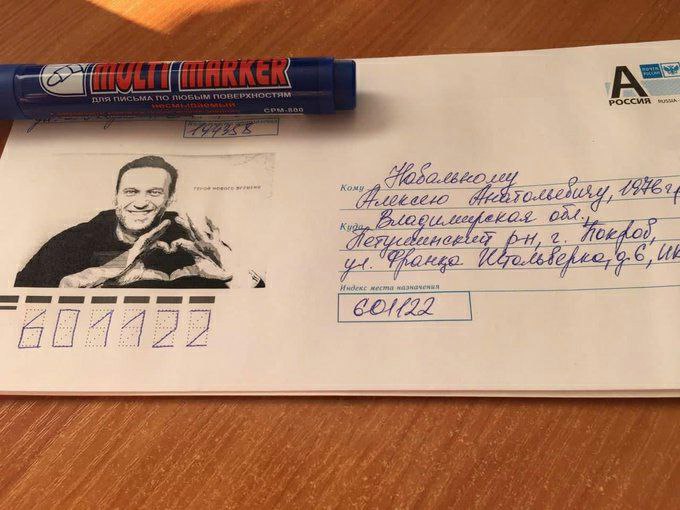 MULTI MARKER
ДЛЯ ПИСЬМА ПО ЛЮБЫМ ПОВЕРХНОСТЯМ
несмываемый
CPM-800
ПОЧТА РОССИИ
А
РОССИЯ
RUSSIA
ГЕРОЙ НОВОГО ВРЕМЕНИ
Кому Навальному
Алексею Анатольевичу, 1976 г.р
Куда Владимирская обл.,
Петушинский р-н, г. Покров,
ул. Франца Штольверка, д. 6, ИК
Индекс места назначения
601122
601122